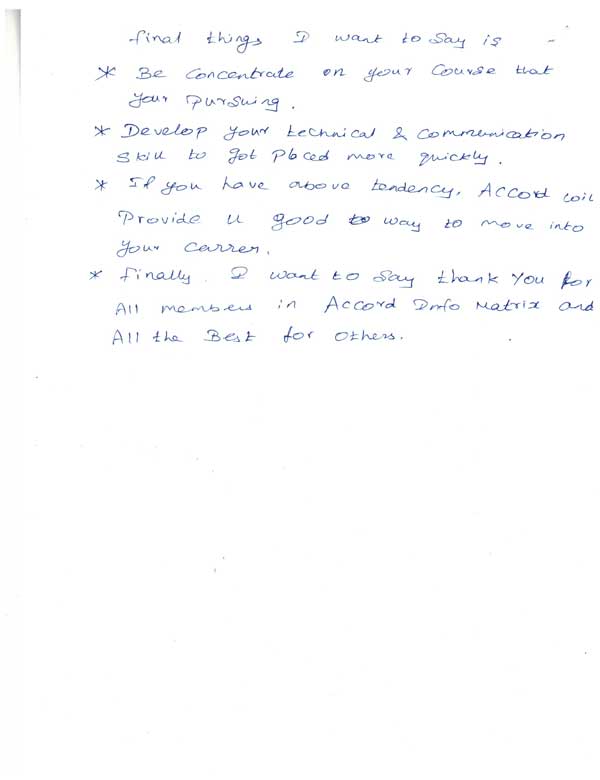 final things I want to say is -
* Be concentrate on your course that
your pursuing.
* Develop your technical & communication
skill to got placed more quickly.
* If you have above tendency, Accord will
Provide u good way to move into
your carrer.
* finally. I want to say thank you for
All members in Accord Info Matrix and
All the Best for others.